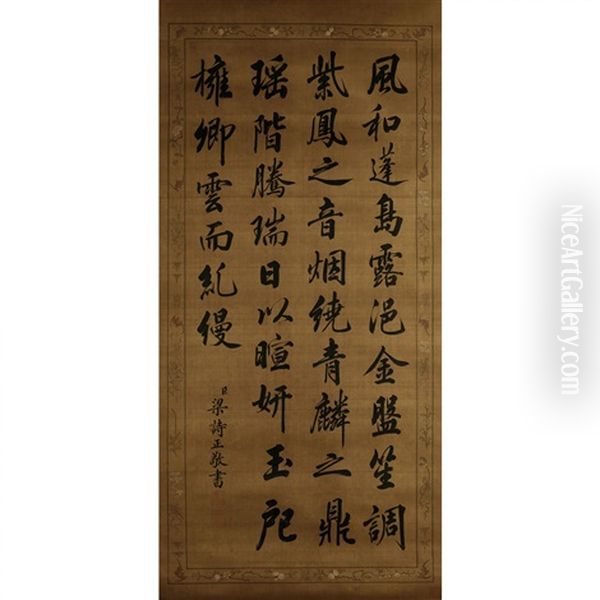 風和蓬島露浥金盤笙調
紫鳳之音烟繞青麟之鼎
瑶階騰瑞日以暄妍玉戺
擁卿雲而糺縵
臣梁詩正敬書
NiceArtGallery.com